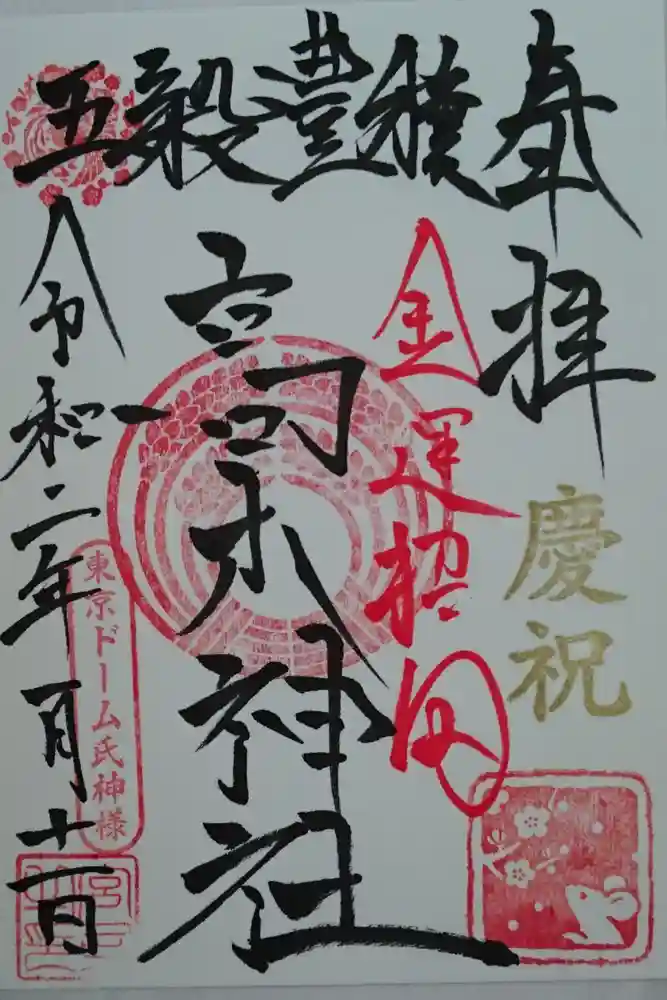 奉拝
慶祝
五穀豊穣
金運招福
高木神社
令和二年一月十一日
東京ドーム氏神様